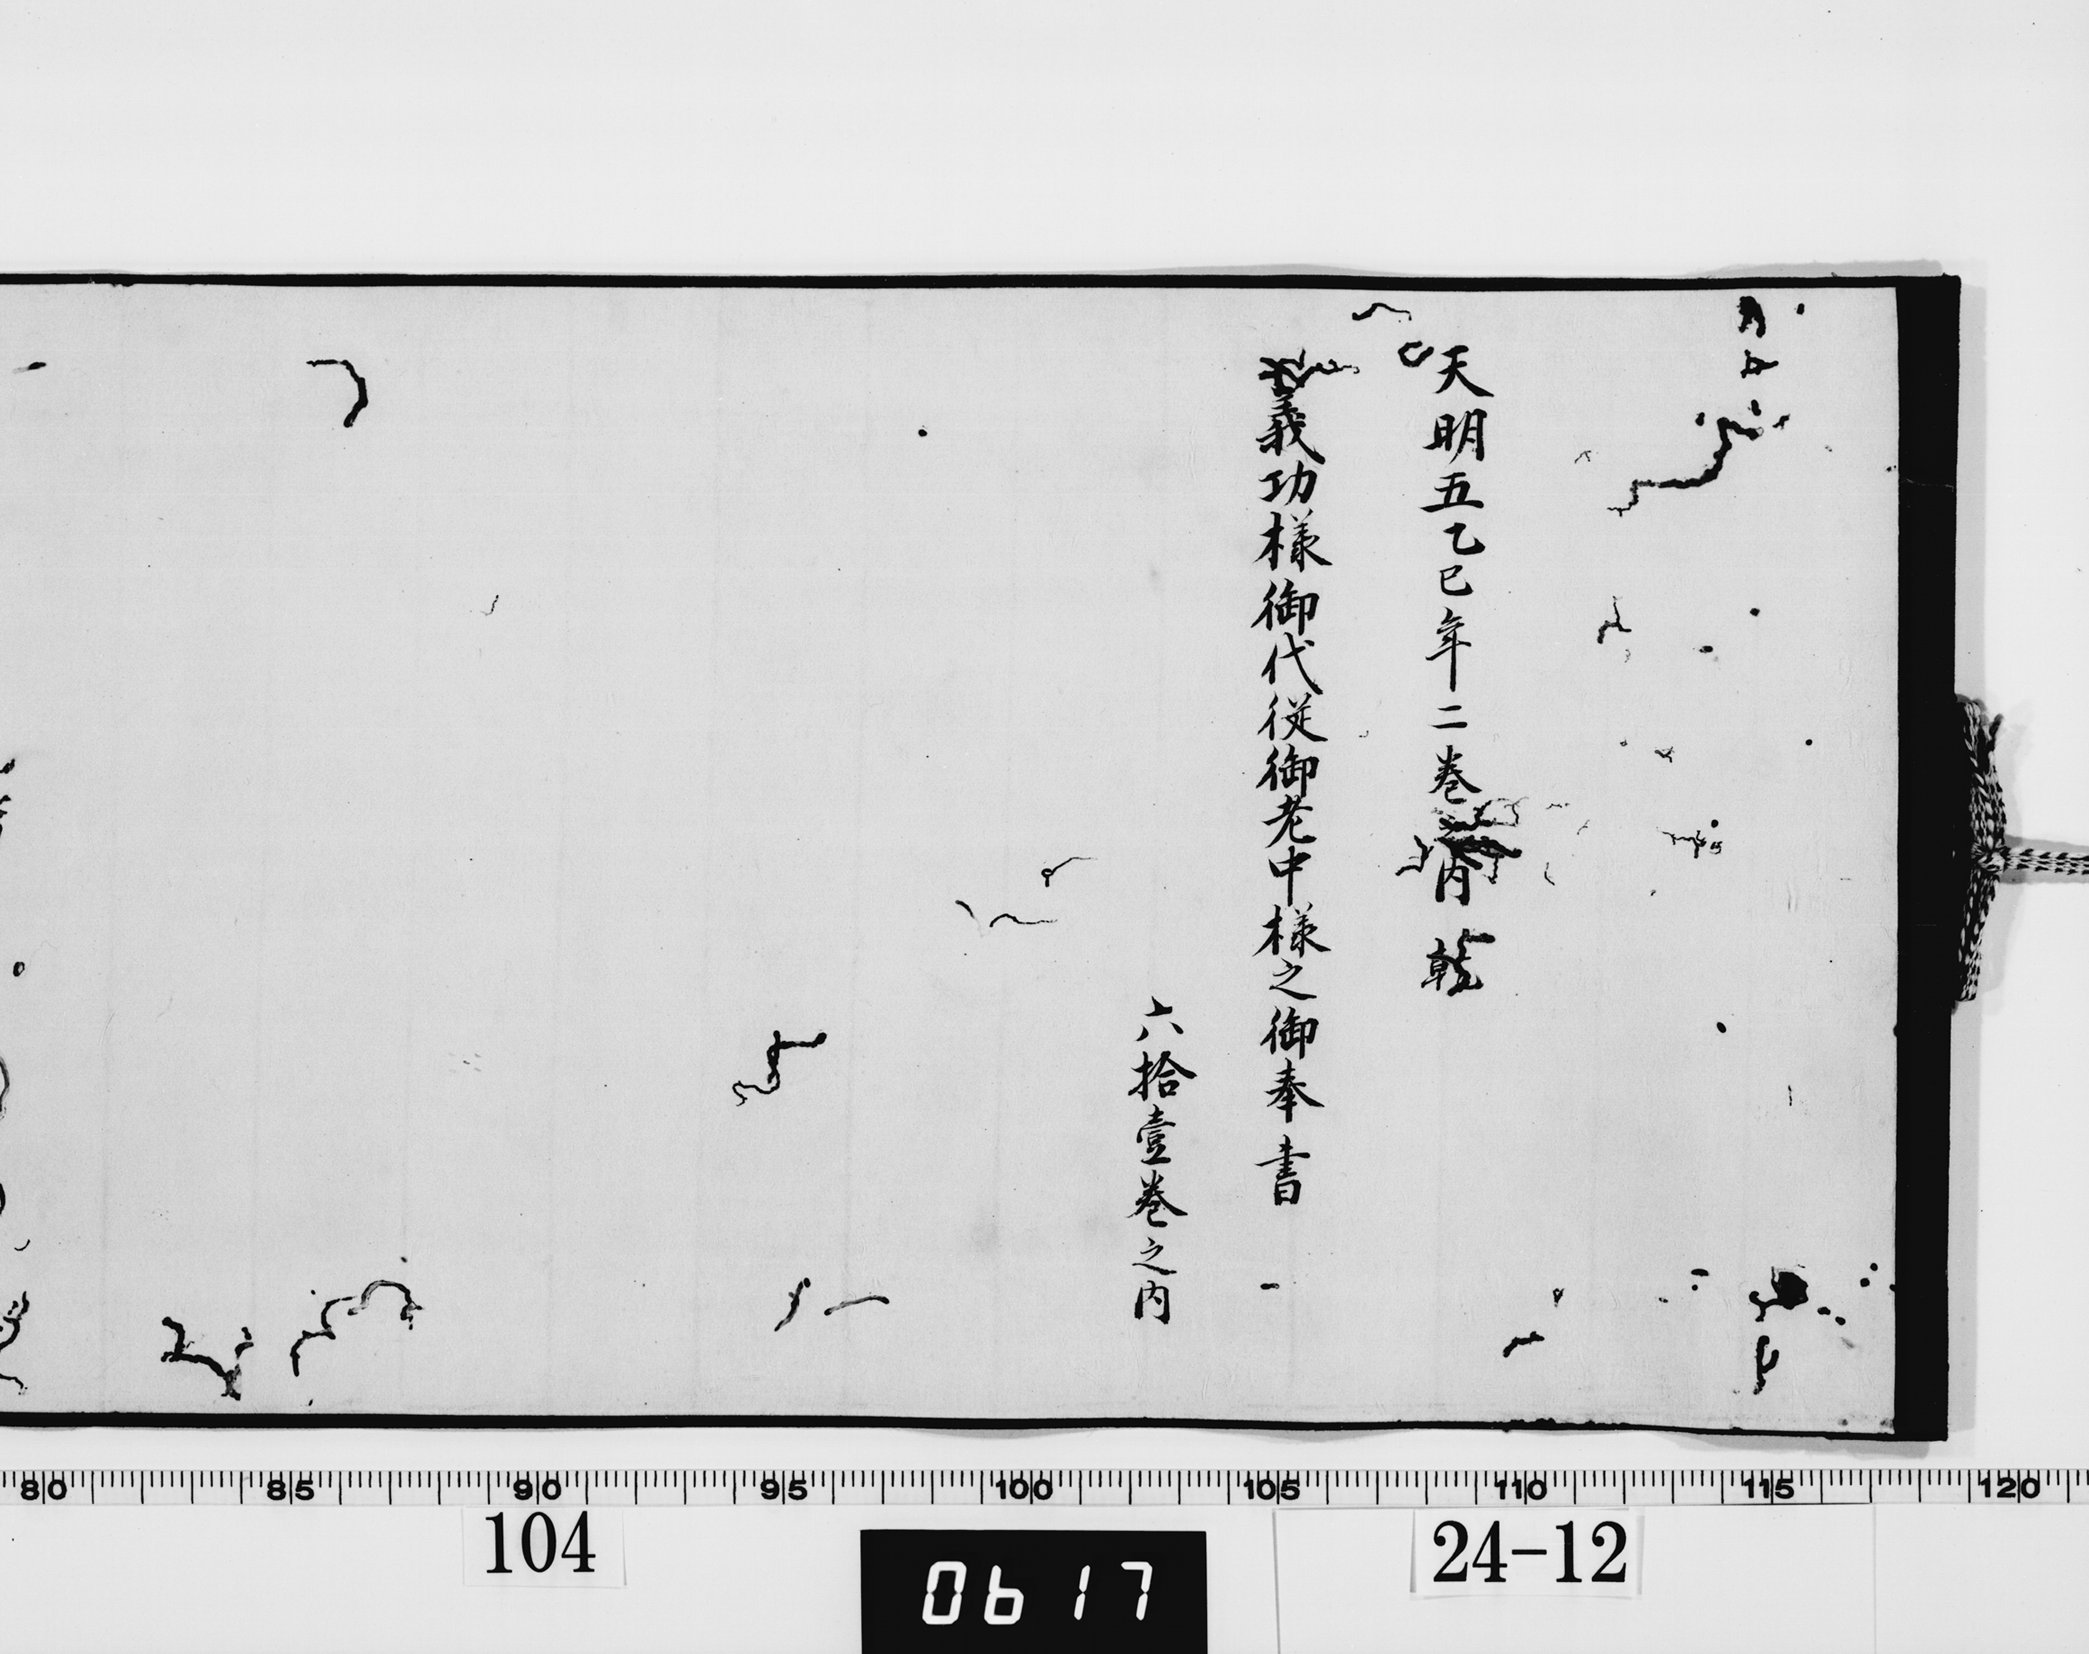 天明五乙巳年二巻之内 乾
義功様御代従御老中様之御奉書
六拾壹巻之内
80 85 90 95 100 105 110 115 120
104
0617
24-12